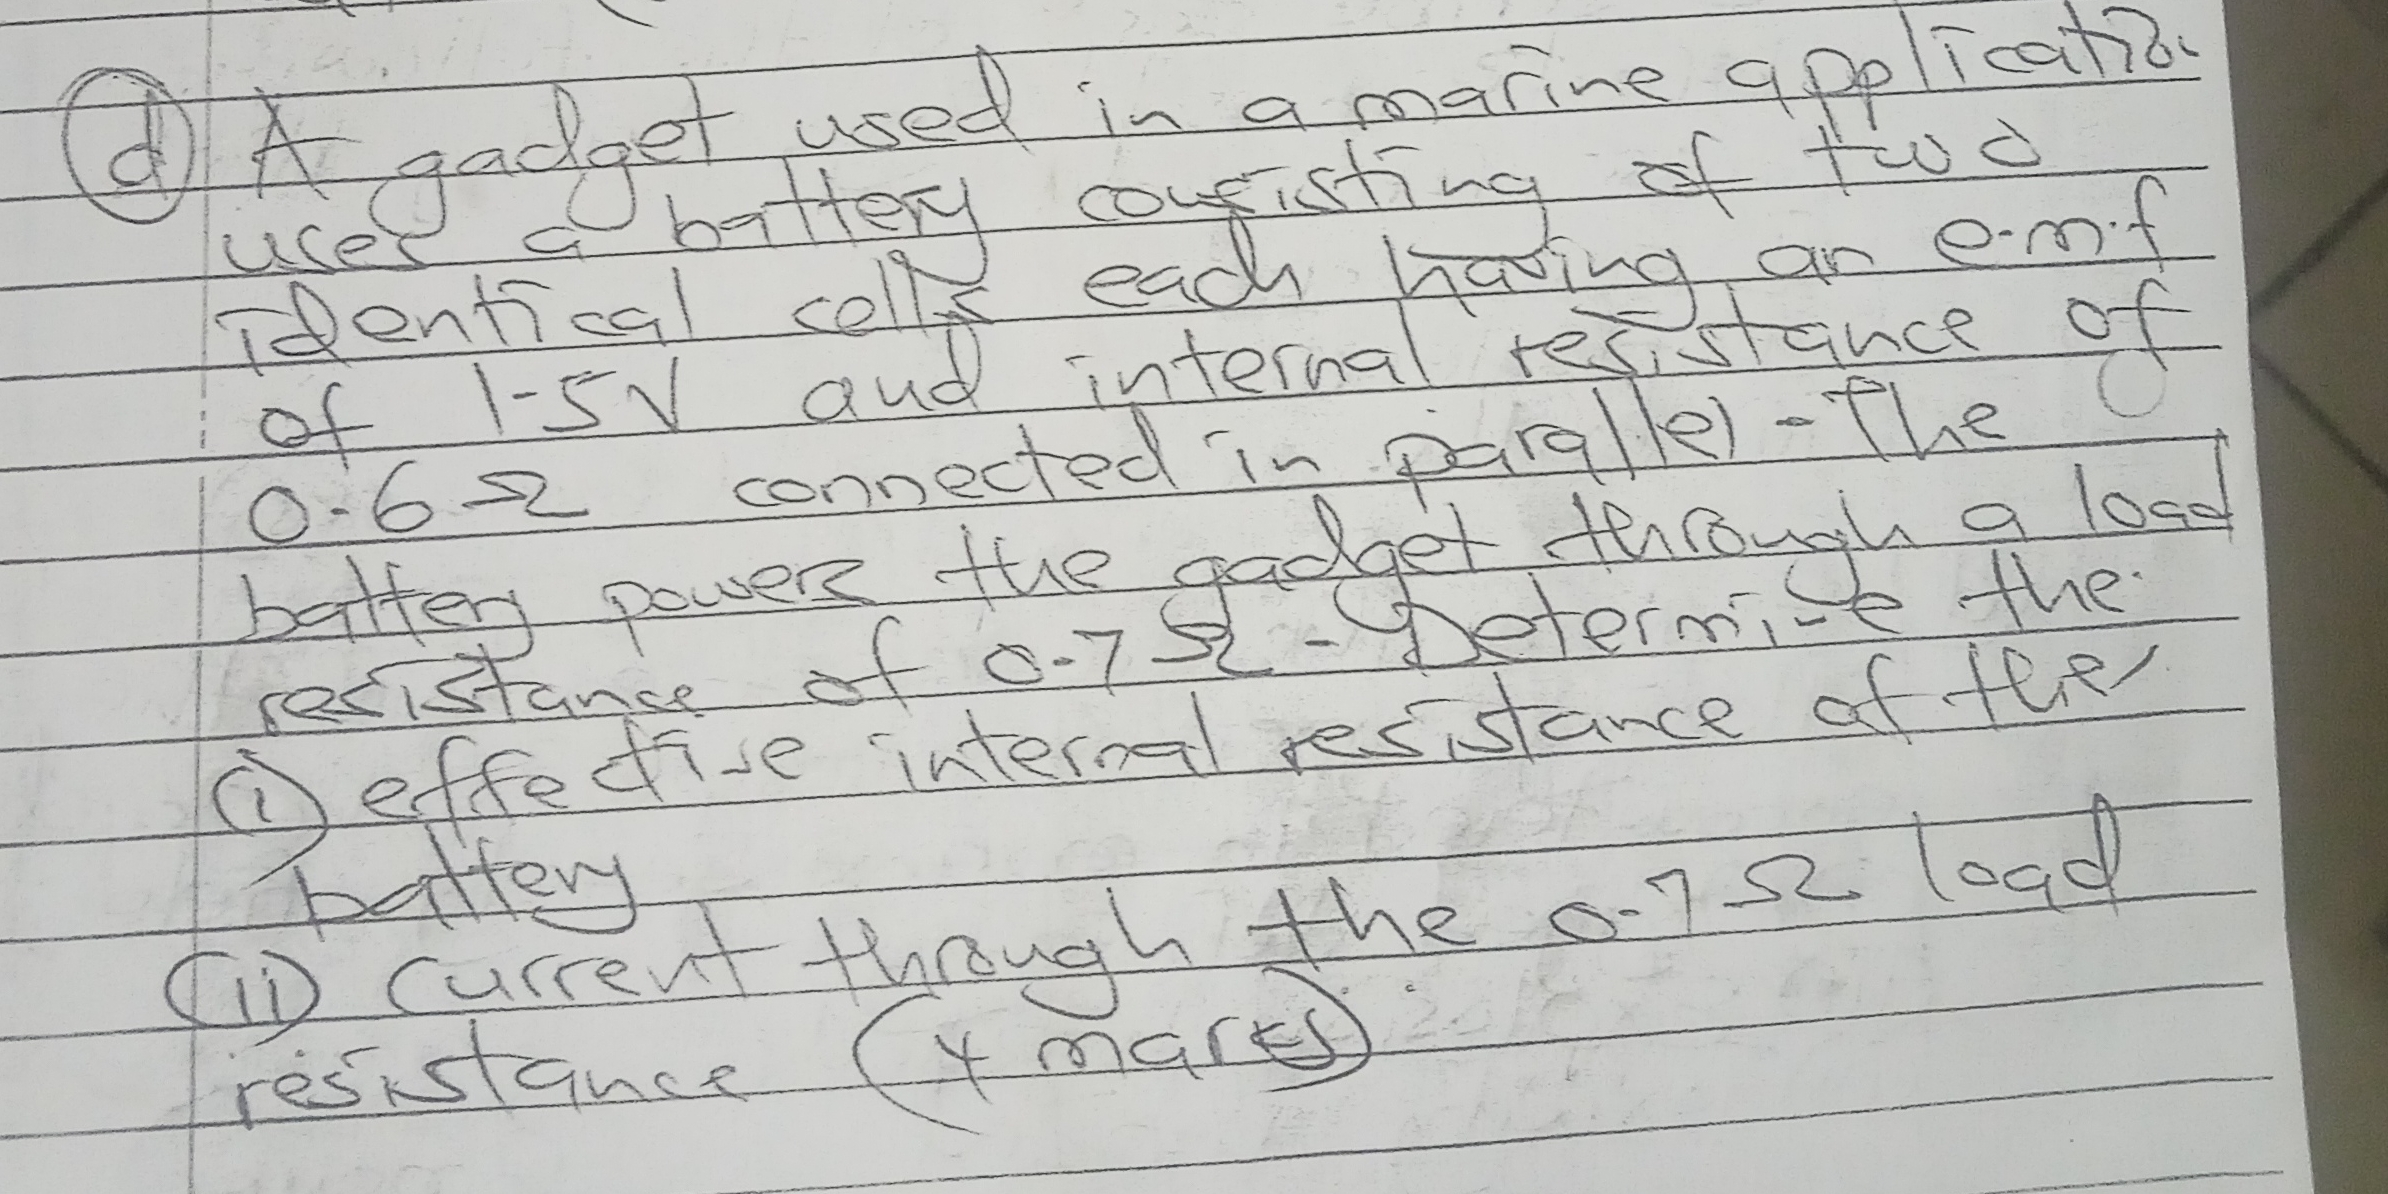 (d) A gadget used in a marine application
uses a battery consisting of two
identical cells each having an e.m.f
of 1.5V and internal resistance of
0.6Ω connected in parallel. The
battery powers the gadget through a load
resistance of 0.7Ω. Determine the
(i) effective internal resistance of the
battery
(ii) Current through the 0.7Ω load
resistance (4 marks)